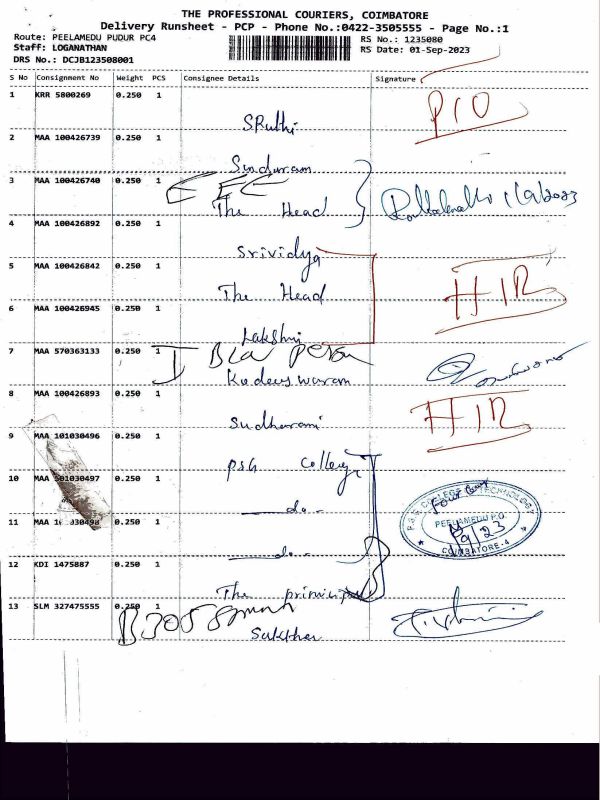 THE PROFESSIONAL COURIERS, COIMBATORE
Delivery Runsheet - PCP - Phone No.:0422-3505555 - Page No.:1
Route: PEELAMEDU PUDUR PC4 RS No.: 1235080
Staff: LOGANATHAN RS Date: 01-Sep-2023
DRS No.: DCJB123508001
S No Consignment No Weight PCS Consignee Details Signature
1 KRR 5800269 0.250 1
SRuthi PIO
2 MAA 100426739 0.250 1
Sinduram
3 MAA 100426740 0.250 1
The Head
4 MAA 100426892 0.250 1
Srividya
5 MAA 100426842 0.250 1
The Head HIR
6 MAA 100426945 0.250 1
Lakshmi
7 MAA 570363133 0.250 1
Kodeeswaran
8 MAA 100426893 0.250 1
Sudharani HIR
9 MAA 101030496 0.250 1
PSG College
10 MAA 501030497 0.250 1
do
11 MAA 030498 0.250 1
do
P.S.G. COLLEGE OF TECHNOLOGY
PEELAMEDU P.O.
COIMBATORE-4
12 KDI 1475887 0.250 1
The principal
13 SLM 327475555 0.250 1